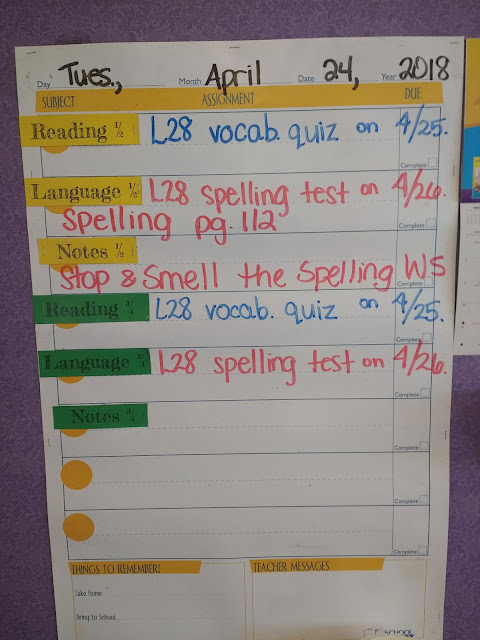 Day Tues., Month April Date 24, Year 2018
SUBJECT ASSIGNMENT DUE
Reading 1/2 L28 vocab. quiz on 4/25.
Complete
Language 1/2 L28 spelling test on 4/26.
Spelling pg. 112
Complete
Notes 1/2
Stop & Smell the Spelling WS
Complete
Reading 3/4 L28 vocab. quiz on 4/25.
Complete
Language 3/4 L28 spelling test on 4/26.
Complete
Notes 3/4
Complete
Complete
Complete
THINGS TO REMEMBER! TEACHER MESSAGES
Take Home
Bring to School